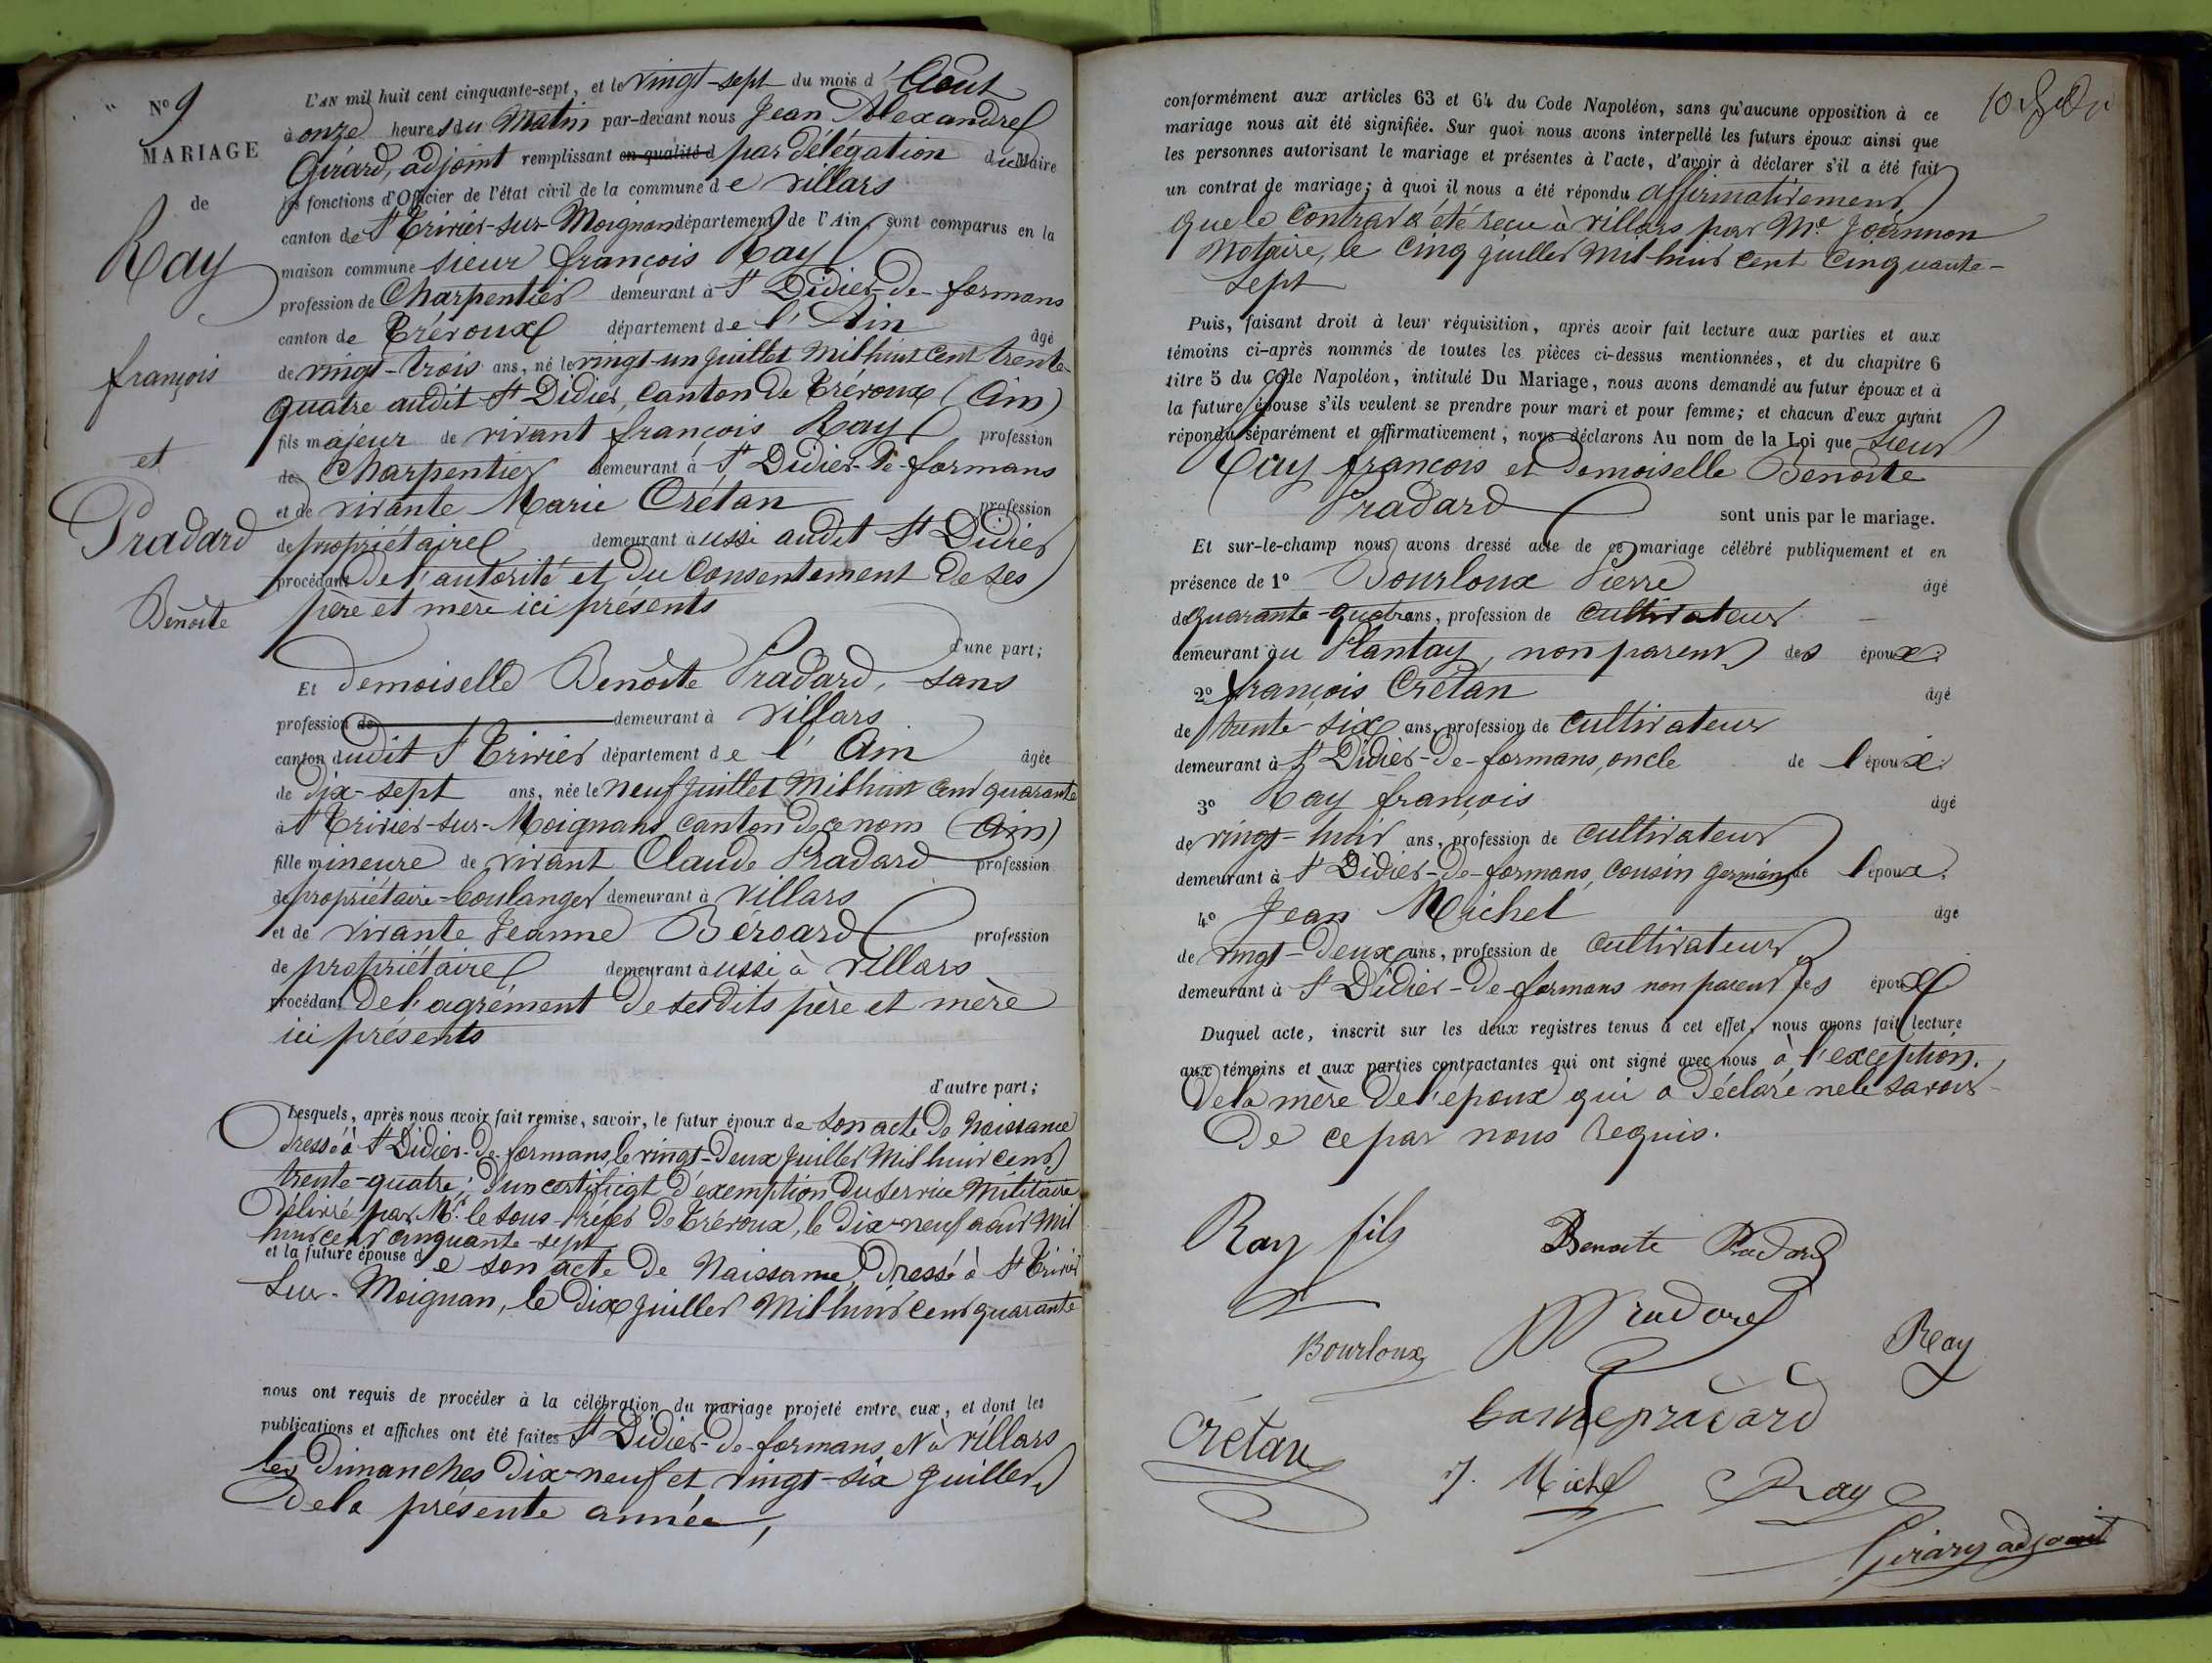 N° 9
MARIAGE
de
Ray
françois
et
Pradard
Benoite
L'AN mil huit cent cinquante-sept, et le vingt-sept du mois d'Aout
à onze heures du Matin par-devant nous Jean Alexandre
Girard, adjoint remplissant en qualité d par délégation du Maire
les fonctions d'Officier de l'état civil de la commune de villars
canton de St Trivier-sur-Moignan département de l'Ain, sont comparus en la
maison commune sieur françois Ray
profession de Charpentier demeurant à St Didier-de-formans
canton de Trévoux département de l'Ain âgé
de vingt-trois ans, né le vingt-un juillet mil huit cent trente-
quatre audit St Didier, canton de Trévoux (Ain)
fils majeur de vivant françois Ray profession
de Charpentier demeurant à St Didier-de-formans
et de vivante Marie Crétan profession
de propriétaire demeurant aussi audit St Didier
procédant de l'autorité et du consentement de ses
père et mère ici présents
d'une part;
Et demoiselle Benoîte Pradard, sans
profession de demeurant à villars
canton dudit St Trivier département de l'Ain âgée
de dix-sept ans, née le neuf juillet mil huit cent quarante
à St Trivier-sur-Moignans canton de ce nom (Ain)
fille mineure de vivant Claude Pradard profession
de propriétaire-boulanger demeurant à villars
et de vivante Jeanne Béroard profession
de propriétaire demeurant aussi à villars
procédant de l'agrément de sesdits père et mère
ici présents
d'autre part;
Lesquels, après nous avoir fait remise, savoir, le futur époux de son acte de Naissance
dressé à St Didier-de-formans, le vingt-deux juillet mil huit cent
trente-quatre; d'un certificat d'exemption du service militaire
délivré par Mr. le sous-Préfet de Trévoux, le dix-neuf août mil
huit cent cinquante-sept
et la future épouse de son acte de Naissance, dressé à St Trivier
sur-Moignan, le dix juillet mil huit cent quarante
nous ont requis de procéder à la célébration du mariage projeté entre eux, et dont les
publications et affiches ont été faites St Didier-de-formans et à villars
les dimanches dix-neuf et vingt-six juillet
de la présente année,
conformément aux articles 63 et 64 du Code Napoléon, sans qu'aucune opposition à ce
mariage nous ait été signifiée. Sur quoi nous avons interpellé les futurs époux ainsi que
les personnes autorisant le mariage et présentes à l'acte, d'avoir à déclarer s'il a été fait
un contrat de mariage; à quoi il nous a été répondu affirmativement
que le contrat a été recu à villars par Me. Joannon
Notaire, le cinq juillet mil huit cent cinquante-
sept
Puis, faisant droit à leur réquisition, après avoir fait lecture aux parties et aux
témoins ci-après nommés de toutes les pièces ci-dessus mentionnées, et du chapitre 6
titre 5 du Code Napoléon, intitulé Du Mariage, nous avons demandé au futur époux et à
la future épouse s'ils veulent se prendre pour mari et pour femme; et chacun d'eux ayant
répondu séparément et affirmativement, nous déclarons Au nom de la Loi que sieur
Ray françois et Demoiselle Benoîte
Pradard sont unis par le mariage.
Et sur-le-champ nous avons dressé acte de ce mariage célébré publiquement et en
présence de 1° Bourloux Pierre âgé
de quarante-quatre ans, profession de cultivateur
demeurant au Plantay, non parent des époux.
2° françois Crétan âgé
de trente-six ans, profession de cultivateur
demeurant à St Didier-de-formans, oncle de l'époux.
3° Ray françois âgé
de vingt-huit ans, profession de cultivateur
demeurant à St Didier-de-formans, cousin germain de l'époux.
4° Jean Michel âgé
de vingt-deux ans, profession de cultivateur
demeurant à St Didier-de-formans non parent des époux
Duquel acte, inscrit sur les deux registres tenus à cet effet, nous avons fait lecture
aux témoins et aux parties contractantes qui ont signé avec nous à l'exception
de la mère de l'époux qui a déclaré ne le savoir
de ce par nous requis.
Ray fils Benoite Pradard
Pradard
Bourloux Ray
pradard
Crétan
J. Michel Ray
Girard adjoint